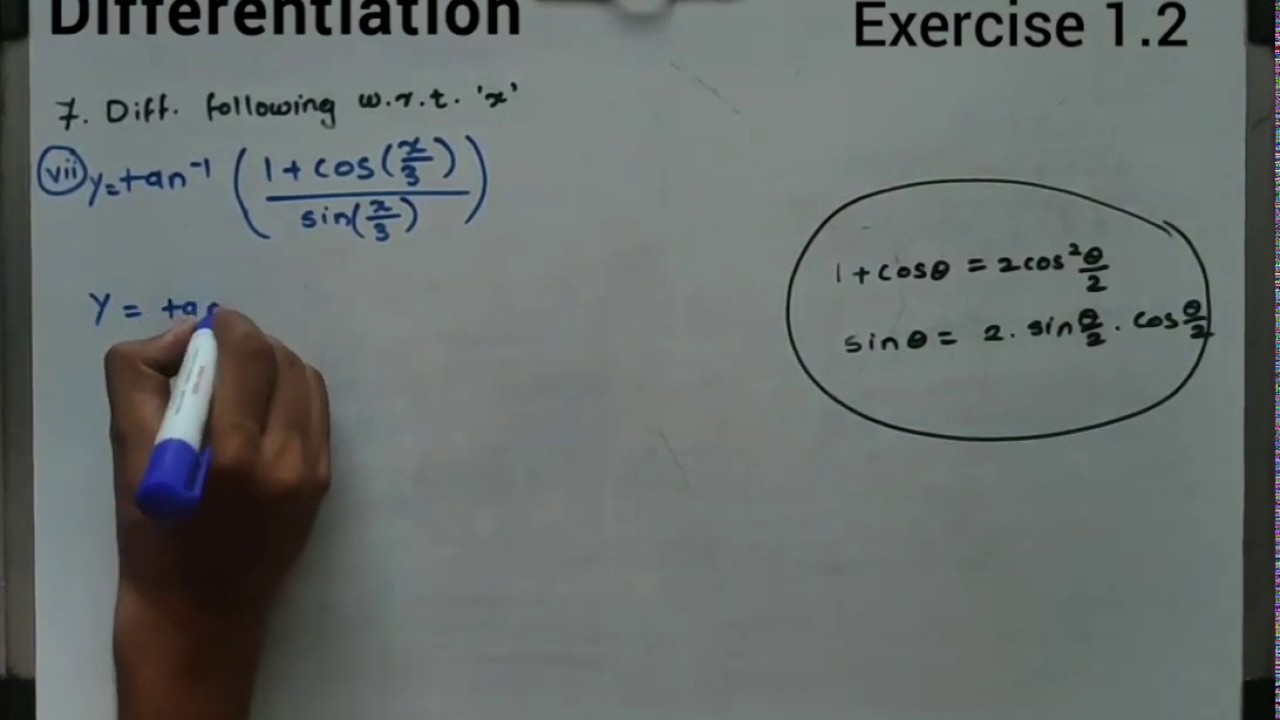 Differentiation
Exercise 1.2
7. Diff. following w.r.t. 'x'
vii y = tan⁻¹ ( (1 + cos(x/3)) / (sin(x/3)) )
1 + cosθ = 2cos²θ/2
sinθ = 2. sinθ/2 . cosθ/2
y = ta